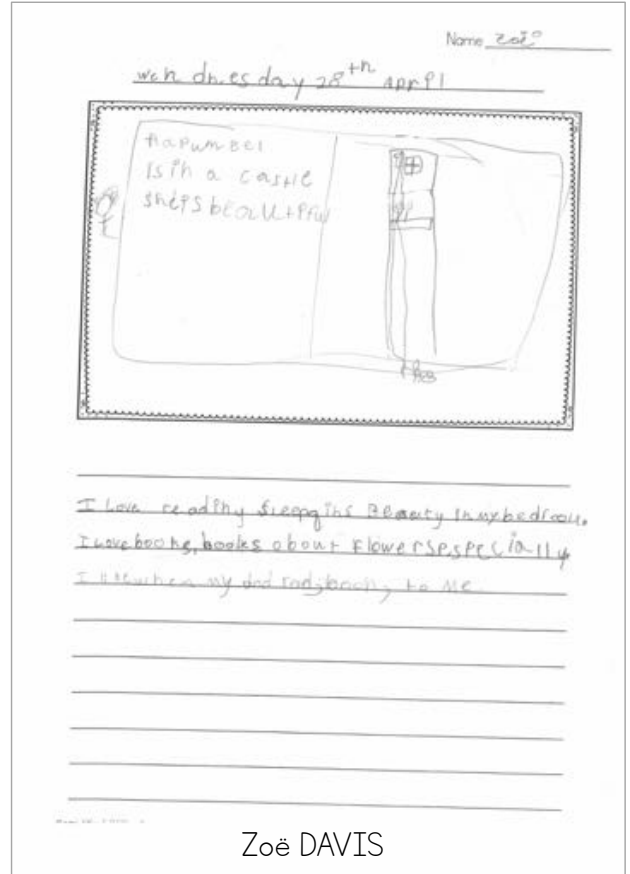 Name Zoë
wehdnesday 28th Aprpl
Rapumbel
Is in a castle
sheis beautpful
I Love reading sleepgins Beauty In my bedroom.
I love books, books about Flowers especially
I like when my dad books to me.
Zoë DAVIS